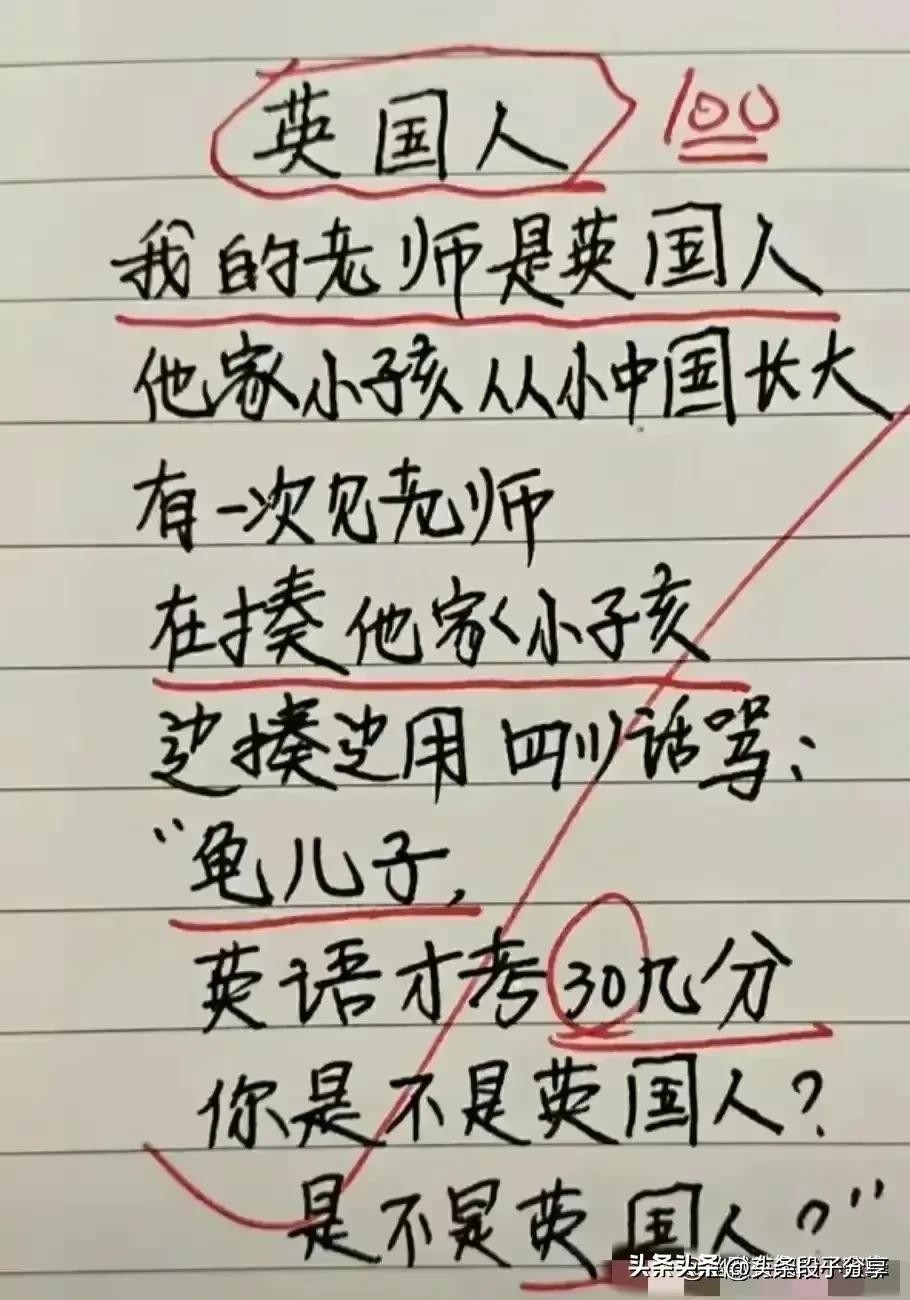 英国人 100
我的老师是英国人
他家小孩从小中国长大
有一次见老师
在揍他家小孩
边揍边用四川话骂：
“龟儿子，
英语才考30几分
你是不是英国人？
是不是英国人？”
头条 @头条段子分享